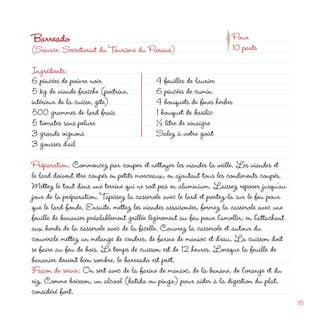 Barreado
(Source: Secrétariat du Tourisme du Paraná)
Pour
10 parts
Ingrédients:
6 pincées de poivre noir
5 kg de viande fraîche (poitrine,
intérieur de la cuisse, gîte)
500 grammes de lard frais
5 tomates sans pelure
3 grands oignons
3 gousses d'ail
4 feuilles de laurier
6 pincées de cumin
4 bouquets de fines herbes
1 bouquet de basilic
½ litre de vinaigre
Salez à votre goût
Préparation: Commencez par couper et nettoyer les viandes la veille. Les viandes et
le lard doivent être coupés en petits morceaux en ajoutant tous les condiments coupés.
Mettez le tout dans une terrine qui ne soit pas en aluminium. Laissez reposer jusqu'au
jour de la préparation. Tapissez la casserole avec le lard et portez-la sur le feu pour
que le lard fonde. Ensuite, mettez les viandes assaisonées, fermez la casserole avec une
feuille de bananier préalablement grillée légèrement au feu pour l'amollir, en l'attachant
aux bords de la casserole avec de la ficelle. Couvrez la casserole et autour du
couvercle mettez un mélange de cendres, de farine de manioc et d'eau. La cuisson doit
se faire au feu de bois. Le temps de cuisson est de 12 heures. Lorsque la feuille de
bananier devient bien sombre, le barreado est prêt.
Façon de servir: On sert avec de la farine de manioc, de la banane, de l'orange et du
riz. Comme boisson, un alcool (batida ou pinga) pour aider à la digestion du plat,
considéré fort.
15